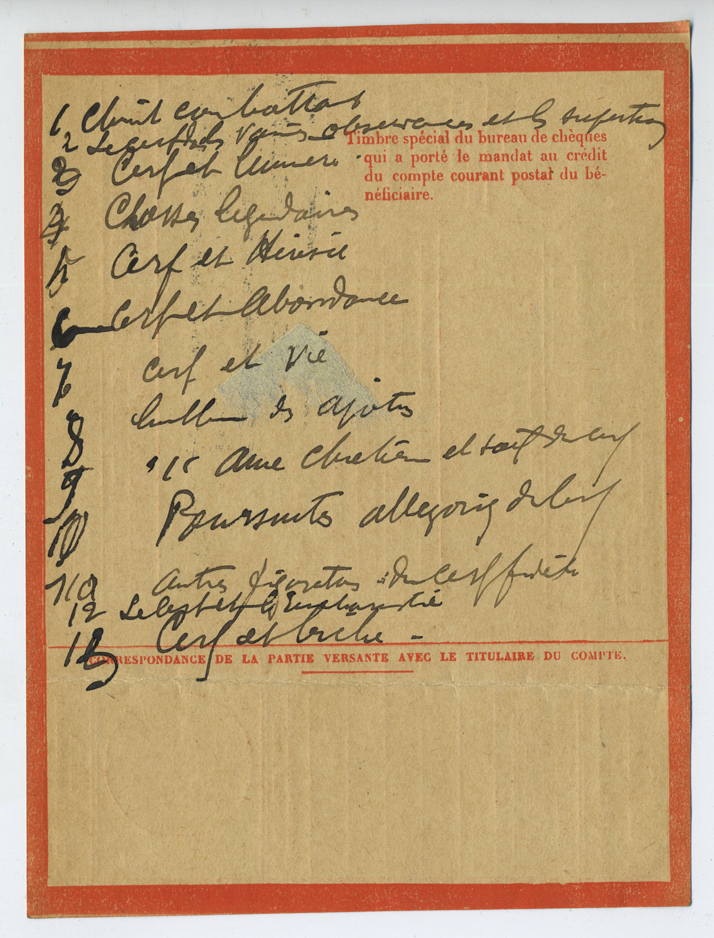 1 Christ combattant
2 Le cerf et les vaines observances et les superstitions
Timbre spécial du bureau de chèques
qui a porté le mandat au crédit
du compte courant postal du bé-
néficiaire.
3 Cerf et lumière
4 Chasses légendaires
5 Cerf et Hérésie
6 Cerf et Abondance
7 Cerf et Vie
8 des
9 Ame chrétienne et soif du cerf
10 Poursuites allegoriq du cerf
11 autres du cerf
12 Le cerf et l'Eucharistie
13 Cerf et
CORRESPONDANCE DE LA PARTIE VERSANTE AVEC LE TITULAIRE DU COMPTE.